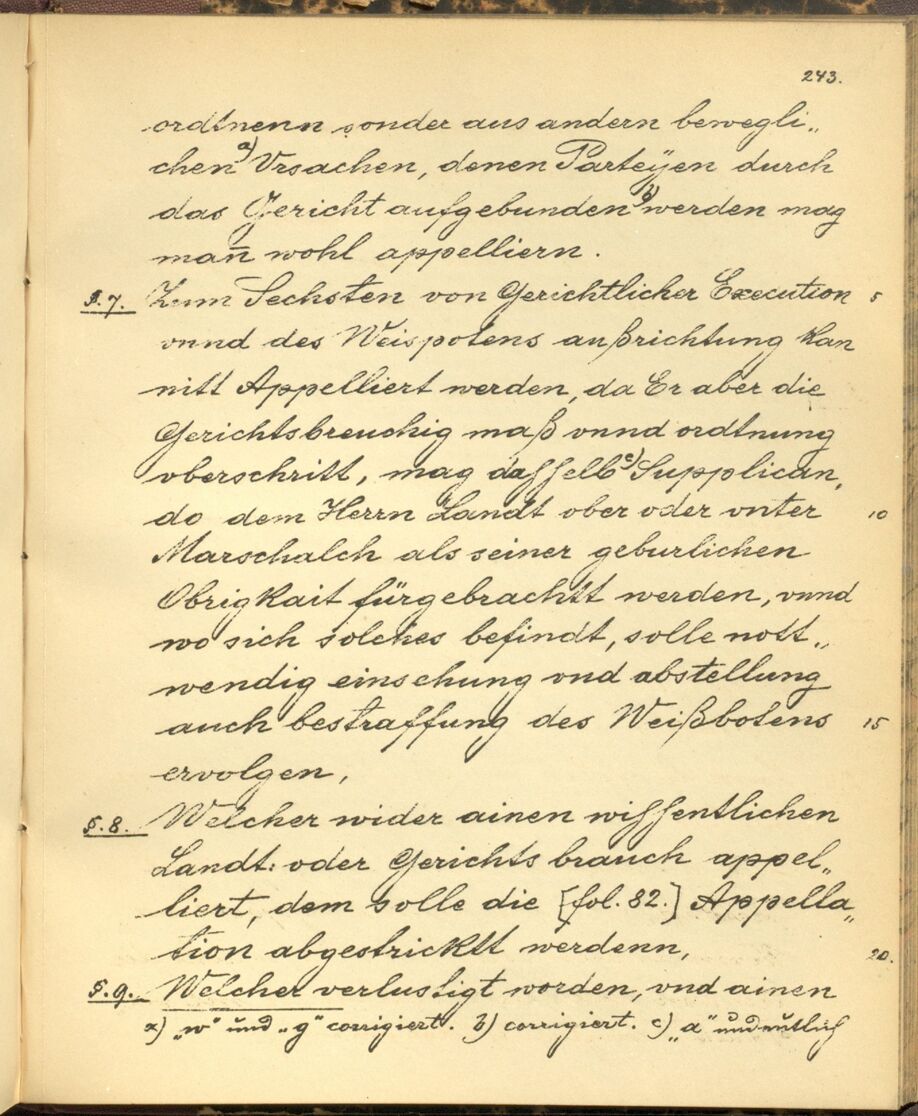 243.
ordtnenn sonder aus andern bewegli„
chen a) Vrsachen, denen Parteÿen durch
das Gericht aufgebunden b) werden mag
man̄ wohl appelliern.
§. 7. Zum Sechsten von Gerichtlicher Execution 5
vnnd des Weispotens außrichtung kan
nitt Appelliert werden, da Er aber die
Gerichtsbreuchig maß vnnd ordtnung
vberschritt, mag dasselb c) Supplican„
do dem Herrn Landt ober oder vnter 10
Marschalch als seiner geburlichen
Obrigkait fürgebrachtt werden, vnnd
wo sich solches befindt, solle nott„
wendig einsehung vnd abstellung
auch bestraffung des Weißbotens 15
ervolgen,
§. 8. Welcher wider ainen wissentlichen
Landt: oder Gerichts brauch appel„
liert, dem solle die [fol. 82.] Appella„
tion abgestricktt werdenn, 20.
§. 9. Welcher verlustigt worden, vnd ainen
a) „w" und „g" corrigiert. b) corrigiert. c) „a" undeutlich